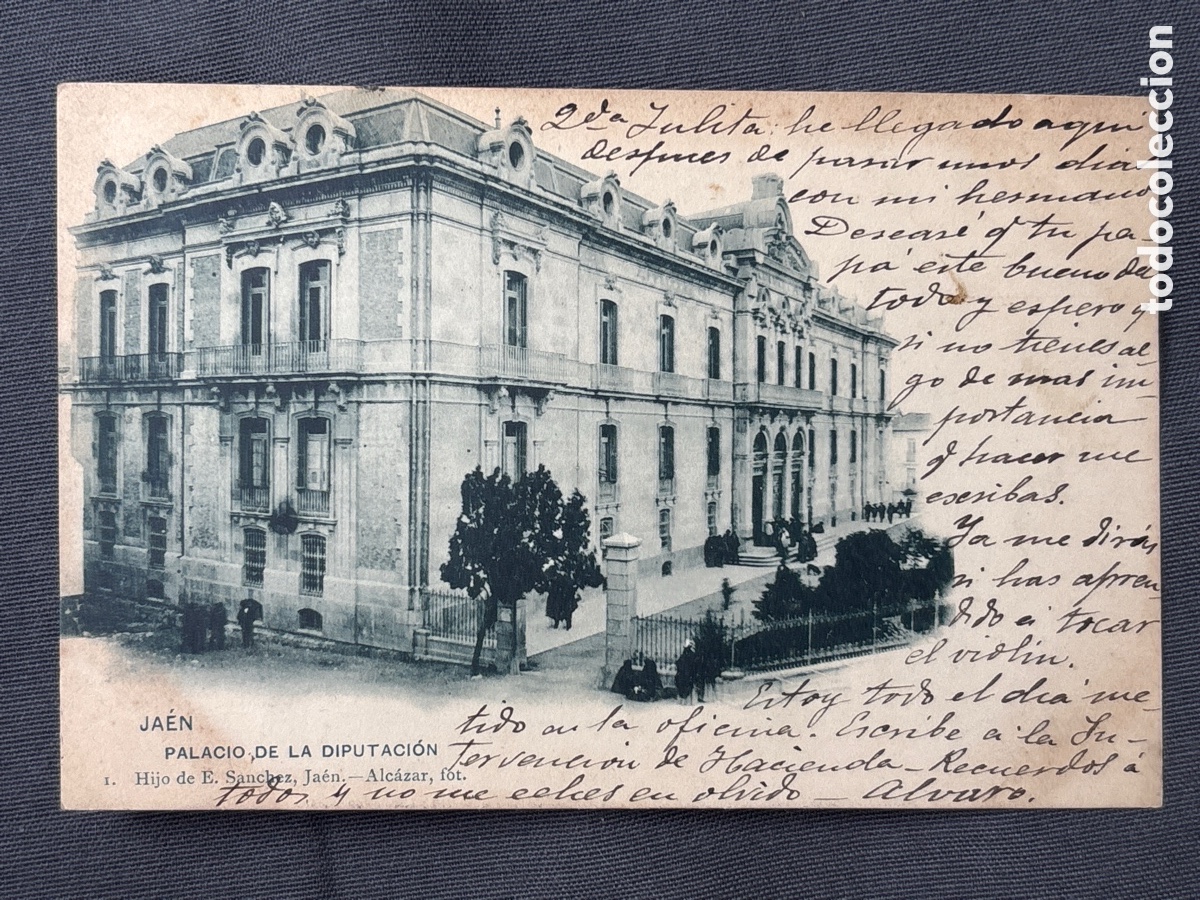 2da Julita: he llegado aqui
despues de pasar unos dias
con mi hermano
Desearé q tu pa-
pá esté bueno del
todo y espero q
si no tienes al
go de mas im-
portancia
q hacer me
escribas.
Ya me dirás
si has apren-
dido á tocar
el violin.
Estoy todo el dia me-
tido en la oficina. Escribe á la In-
tervencion de Hacienda - Recuerdos á
todos y no me eches en olvido - Alvaro.
JAÉN
PALACIO DE LA DIPUTACIÓN
1. Hijo de E. Sanchez, Jaén.—Alcázar, fot.
todocoleccion